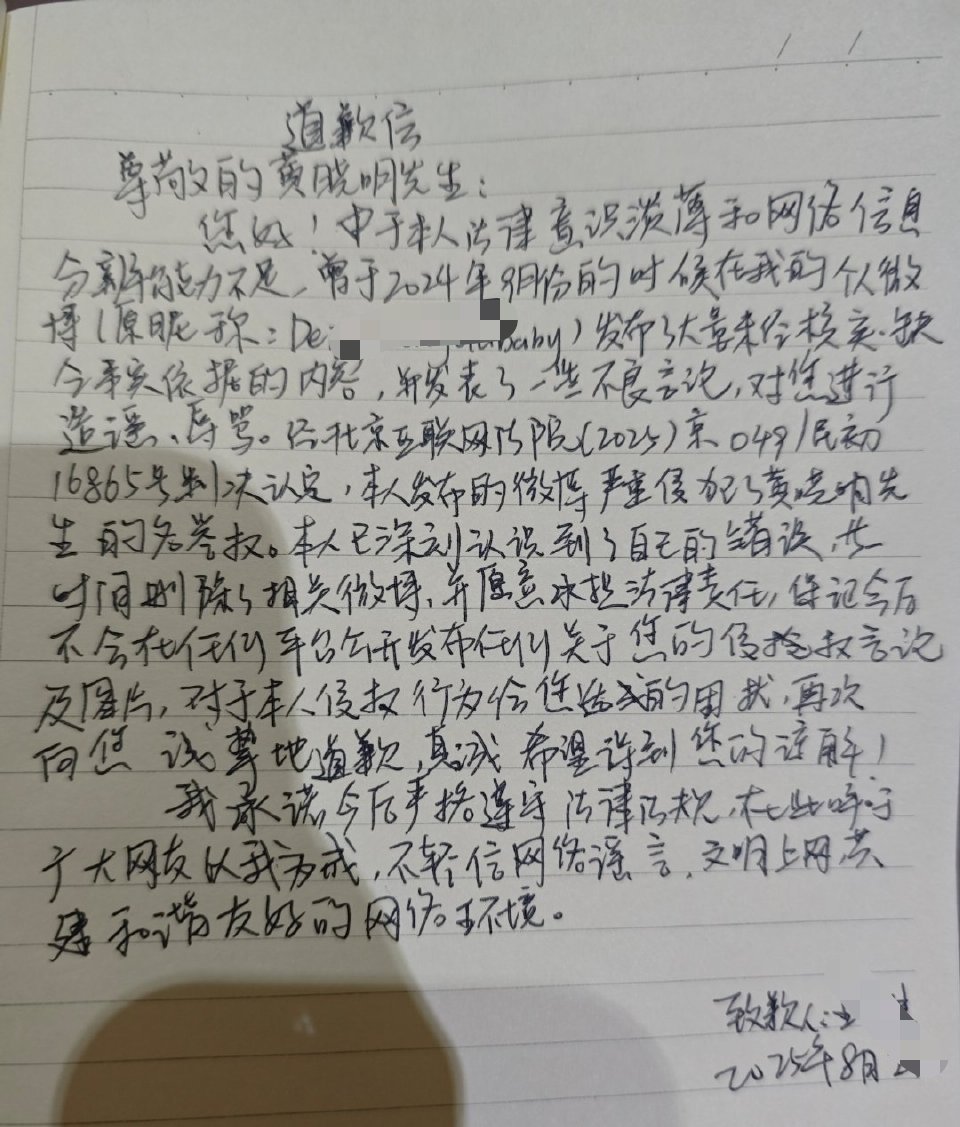 道歉信
尊敬的黄晓明先生：
您好！由于本人法律意识淡薄和网络信息
分辨能力不足，曾于2024年9月份的时候在我的个人微
博（原昵称：De baby）发布了大量未经核实、缺
令事实依据的内容，并发表了一些不良言论，对您进行
造谣、辱骂。经北京互联网法院（2025）京0491民初
16865号判决认定，本人发布的微博严重侵犯了黄晓明先
生的名誉权。本人已深刻认识到了自己的错误，共
时间删除了相关微博，并愿意承担法律责任，保证今后
不会在任何平台公开发布任何关于您的侵权言论
及图片，对于本人侵权行为给您造成的困扰，再次
向您诚挚地道歉，真诚希望得到您的谅解！
我承诺今后严格遵守法律法规，在此呼吁
广大网友以我为戒，不轻信网络谣言，文明上网，共
建和谐友好的网络环境。
致歉人：
2025年8月